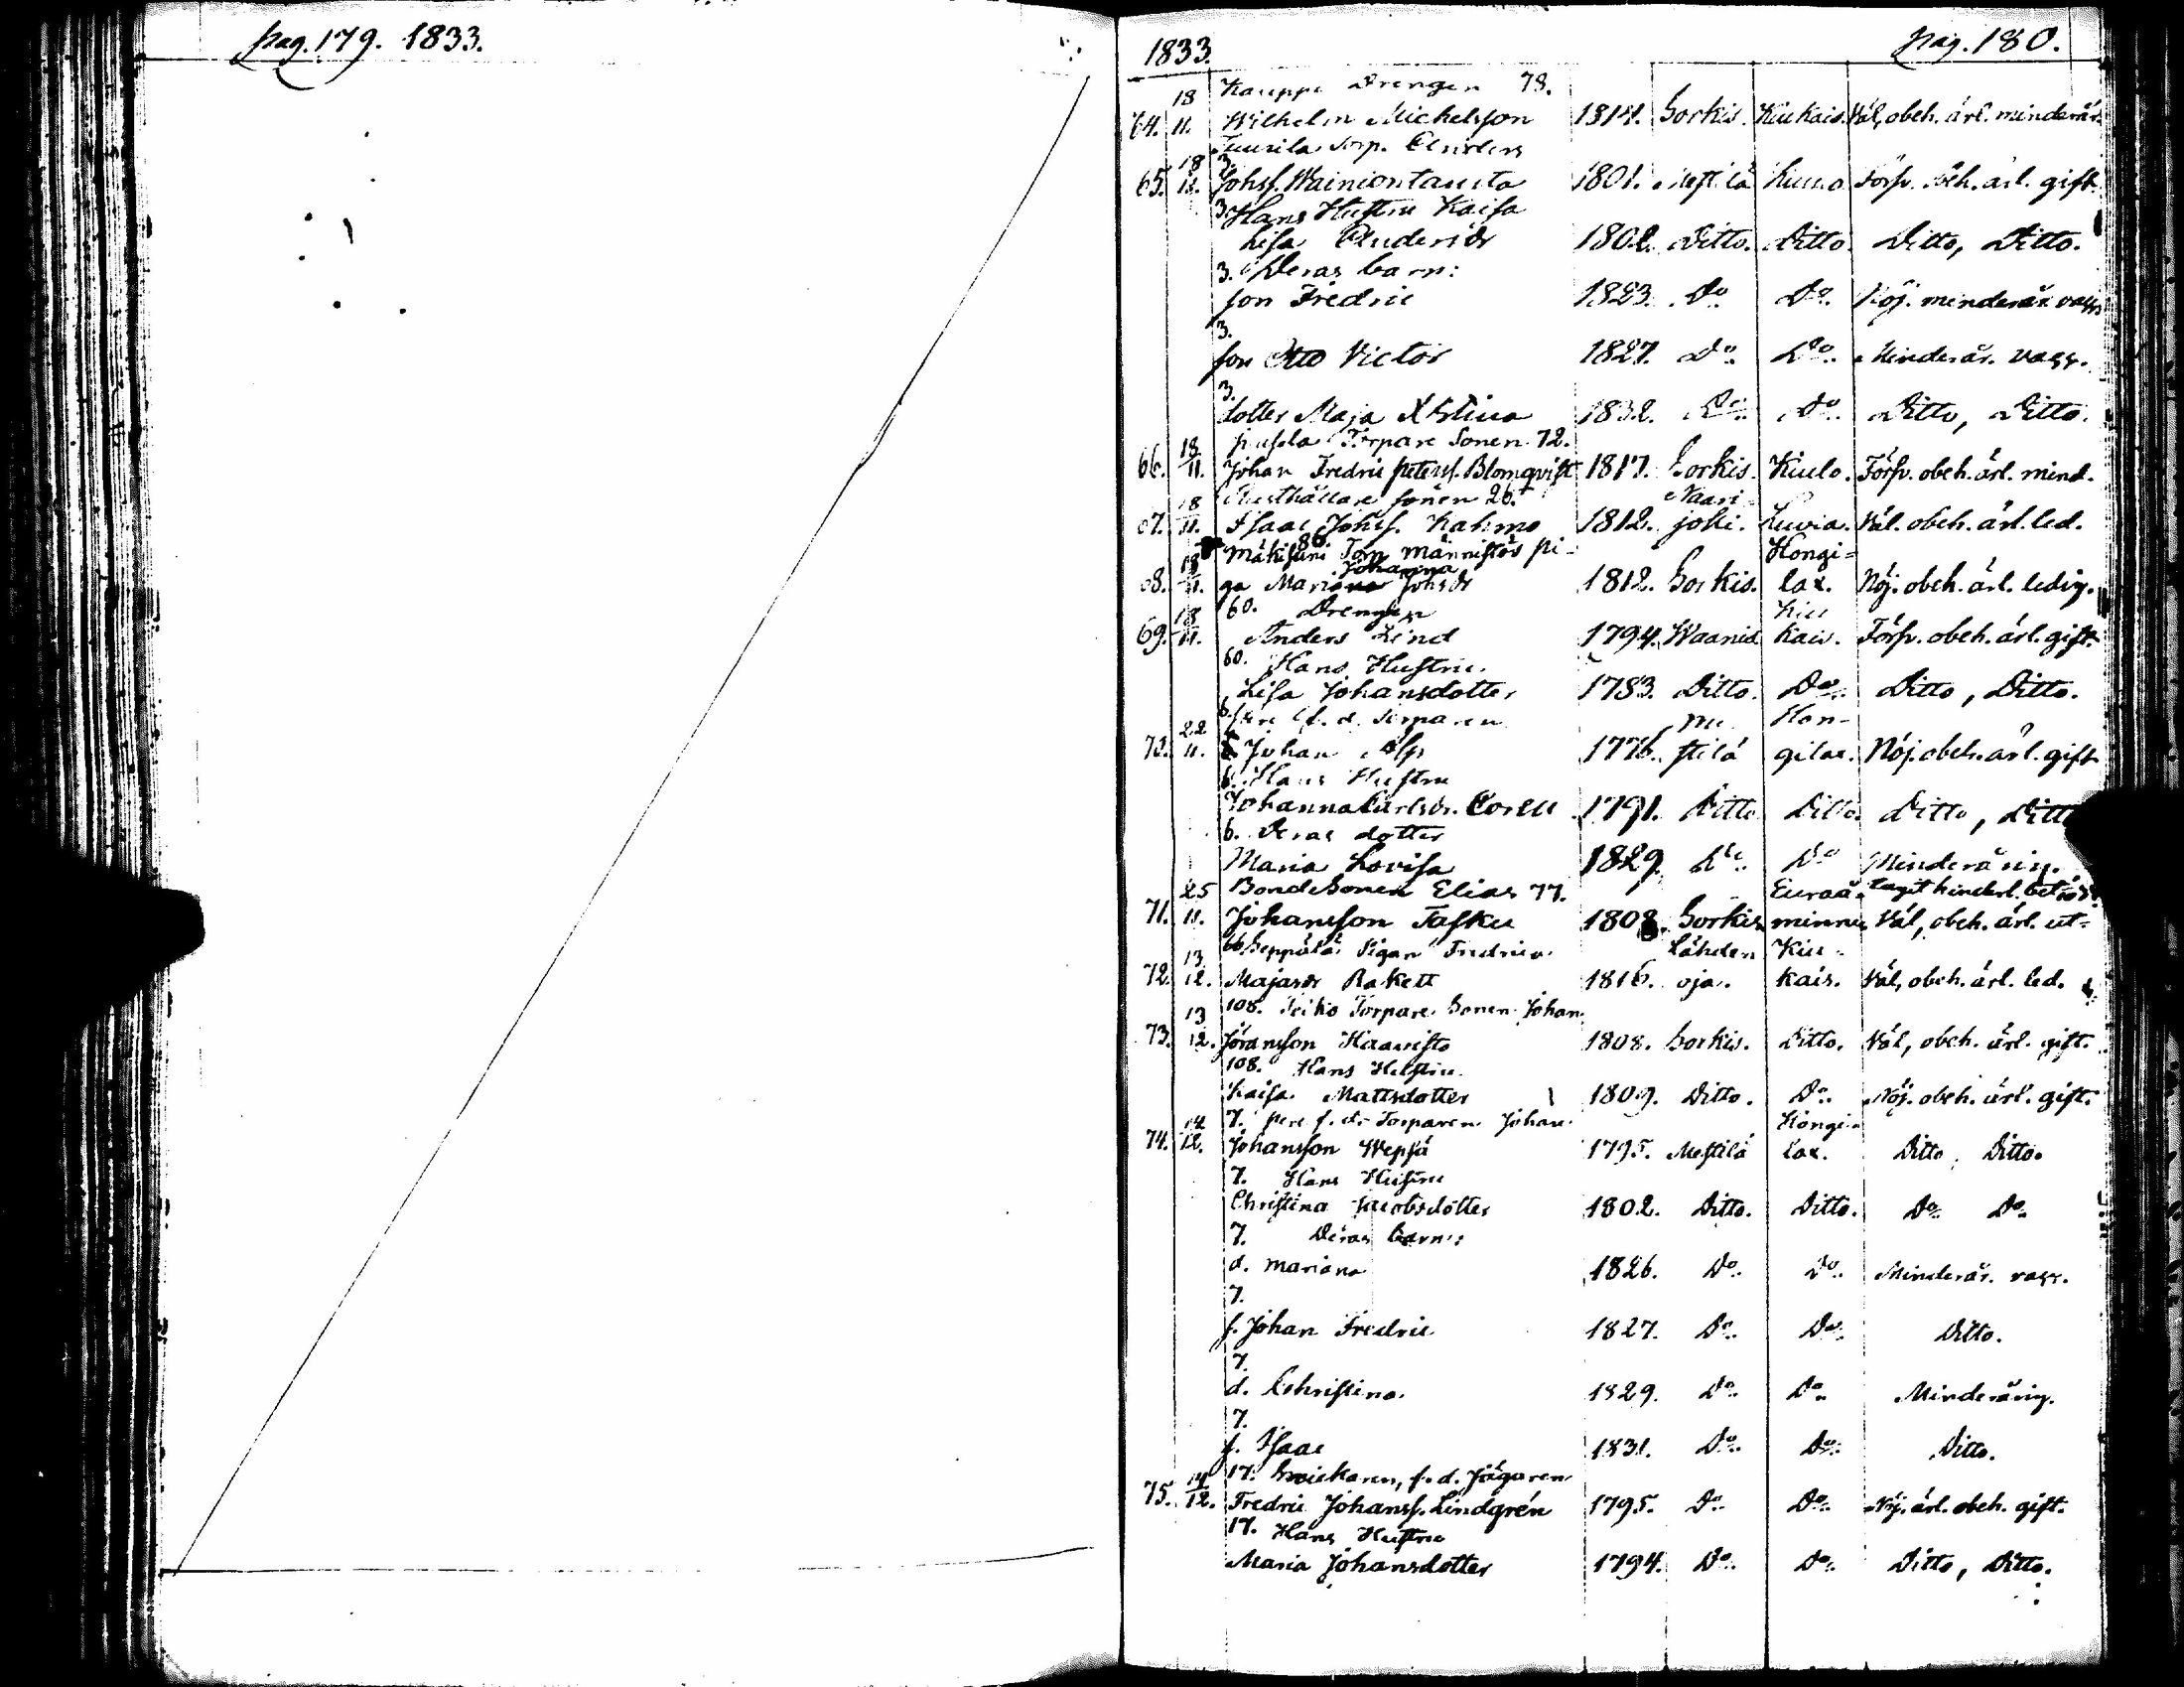 pag. 179. 1833.
1833. pag. 180.
18 Kauppi Drengen 78.
64. 11. Wilhelm Michelsson 1814. Sorkis. Kiukais. Väl, obeh. ärl. minderår.
18 Tuurila Torp. Anders
65. 11. Johsf. Wainiontausta 1801. Mestilä Kiulo Försv. obeh. ärl. gift.
3. Hans Hustru Kaisa
Lisa Andersdr 1802. Ditto. Ditto. Ditto, Ditto.
3. Deras barn:
son Fredric 1823. Do Do. Nöj. minderår. vacc.
3.
son Otto Victor 1827. Do. Do. Minderår. vacc.
3.
dotter Maja Xstina 1832. Do. Do. Ditto, Ditto.
18 Torpare Sonen 72.
66. 11. Johan Fredric Petersf. Blomqvist 1817. Sorkis. Kiulo. Försv. obeh. ärl. mind.
18 Rusthållare sonen 26. Naari-
67. 11. Isaac Johsf. Kahmo 1812. joki. Luvia. Väl. obeh. ärl. led.
18 86. Torp männistös pi- Hongi=
Johanna
68. 11. ga Mariana Johsdr 1812. Sorkis. lax. Nöj. obeh. ärl. ledig.
18 60. Drengen Kiu
69. 11. Anders Lind 1794. Waanis. kais. Försv. obeh. ärl. gift.
60. Hans Hustru.
Lisa Johansdotter 1783. Ditto. Do. Ditto, Ditto.
22 6. f. d. Torparen Me Hon-
70. 11. Johan Alp 1776. stilä gilax. Nöj. obeh. ärl. gift
6. Hans Hustru
Johanna Carlsdr. 1791. Ditto Ditto. Ditto, Ditto
6. Deras dotter
Maria Lovisa 1829. Do. Do Minderårig.
25 Bonde Sonen Elias 77. Euraå=
71. 11. Johansson Tasku 1808. Sorkis minne Väl, obeh. ärl. ut=
13 66 Seppälä Pigan Fredrica Lähden Kiu-
72. 12. Majasdr Rakett 1816. oja. kais. Väl, obeh. ärl. led.
13 108. Torpare Sonen Johan
73. 12. Jöransson Haavisto 1808. Sorkis. Ditto. Väl, obeh. ärl. gift.
108. Hans Hustru.
Kaisa Mattsdotter 1809. Ditto. Do. Nöj. obeh. ärl. gift.
14 7. f. d. Torparen Johan Hongi=
74. 12. Johansson Wepsä 1795. Mestilä lax. Ditto, Ditto.
7. Hans Hustru
Christina Jacobsdotter 1802. Ditto. Ditto. Do. Do.
7. Deras barn:
d. Mariana 1826. Do. Do. Minderår. vacc.
7.
s. Johan Fredric 1827. Do. Do. Ditto.
7.
d. Christina. 1829. Do. Do. Minderårig.
7.
s. Isaac 1831. Do. Do. Ditto.
14 17. Snickaren, f. d. Jägaren
75. 12. Fredric Johansf. Lindgrén 1795. Do. Do. Nöj. ärl. obeh. gift.
17. Hans Hustru
Maria Johansdotter 1794. Do. Do. Ditto, Ditto.